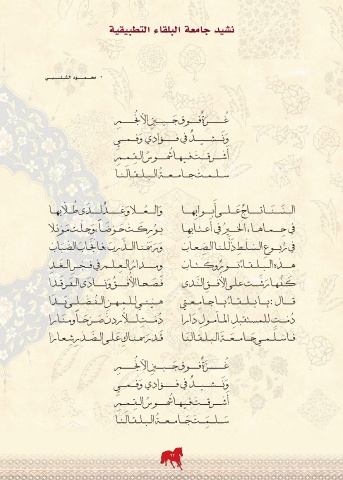 نشيد جامعة البلقاء التطبيقية
* محمود الشلبي
غُرَّةٌ فوق جبين الأنجُمِ
ونشيدٌ في فؤادي وفمي
أشرقت فيها شموسُ القممِ
سلمت جامعة البلقا لنا
السَّنا تاجٌ على أبوابها والعُلا وعدٌ لدى طلابها
في حماها، الخير في أعتابها بوركت حوضاً وجلّت موئلا
في ربوع السلط ذللنا الصعاب ورسمنا الدرب فانجاب الضباب
هذه البلقاء نورٌ وكتاب ومدار العلم في فجر الغد
كفّها رشّت على الأفق الندى فصحا الأفق ونادى الفرقدا
قال: يا بلقاء يا جامعتي
دُمتِ للمستقبل المأمول دارا دُمتِ للأردن صرحاً ومنارا
فاسلمي جامعة البلقا لنا قد رسمناك على الصدر شعارا
غُرَّةٌ فوق جبين الأنجُمِ
ونشيدٌ في فؤادي وفمي
أشرقت فيها شموسُ القممِ
سلمت جامعة البلقا لنا